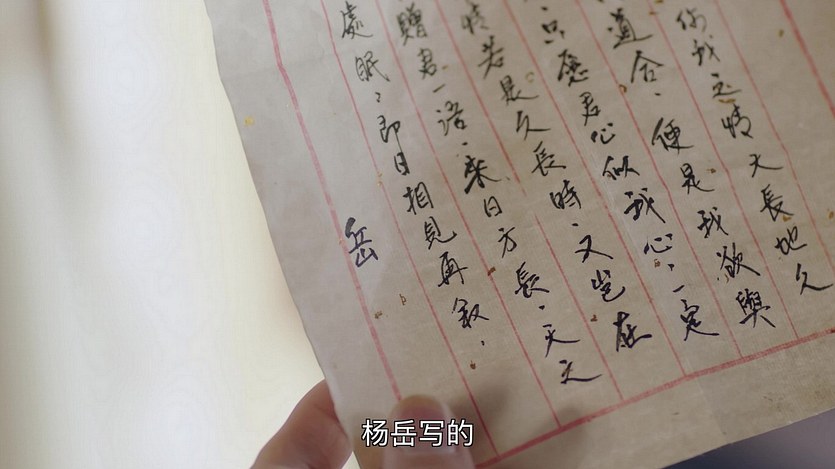 你我之情天長地久
道合,便是我欲與
只愿君心似我心,一定
情若是久長時,又豈在
贈君一語,來日方長,天之
處眠,即日相見再叙,
岳
杨岳写的